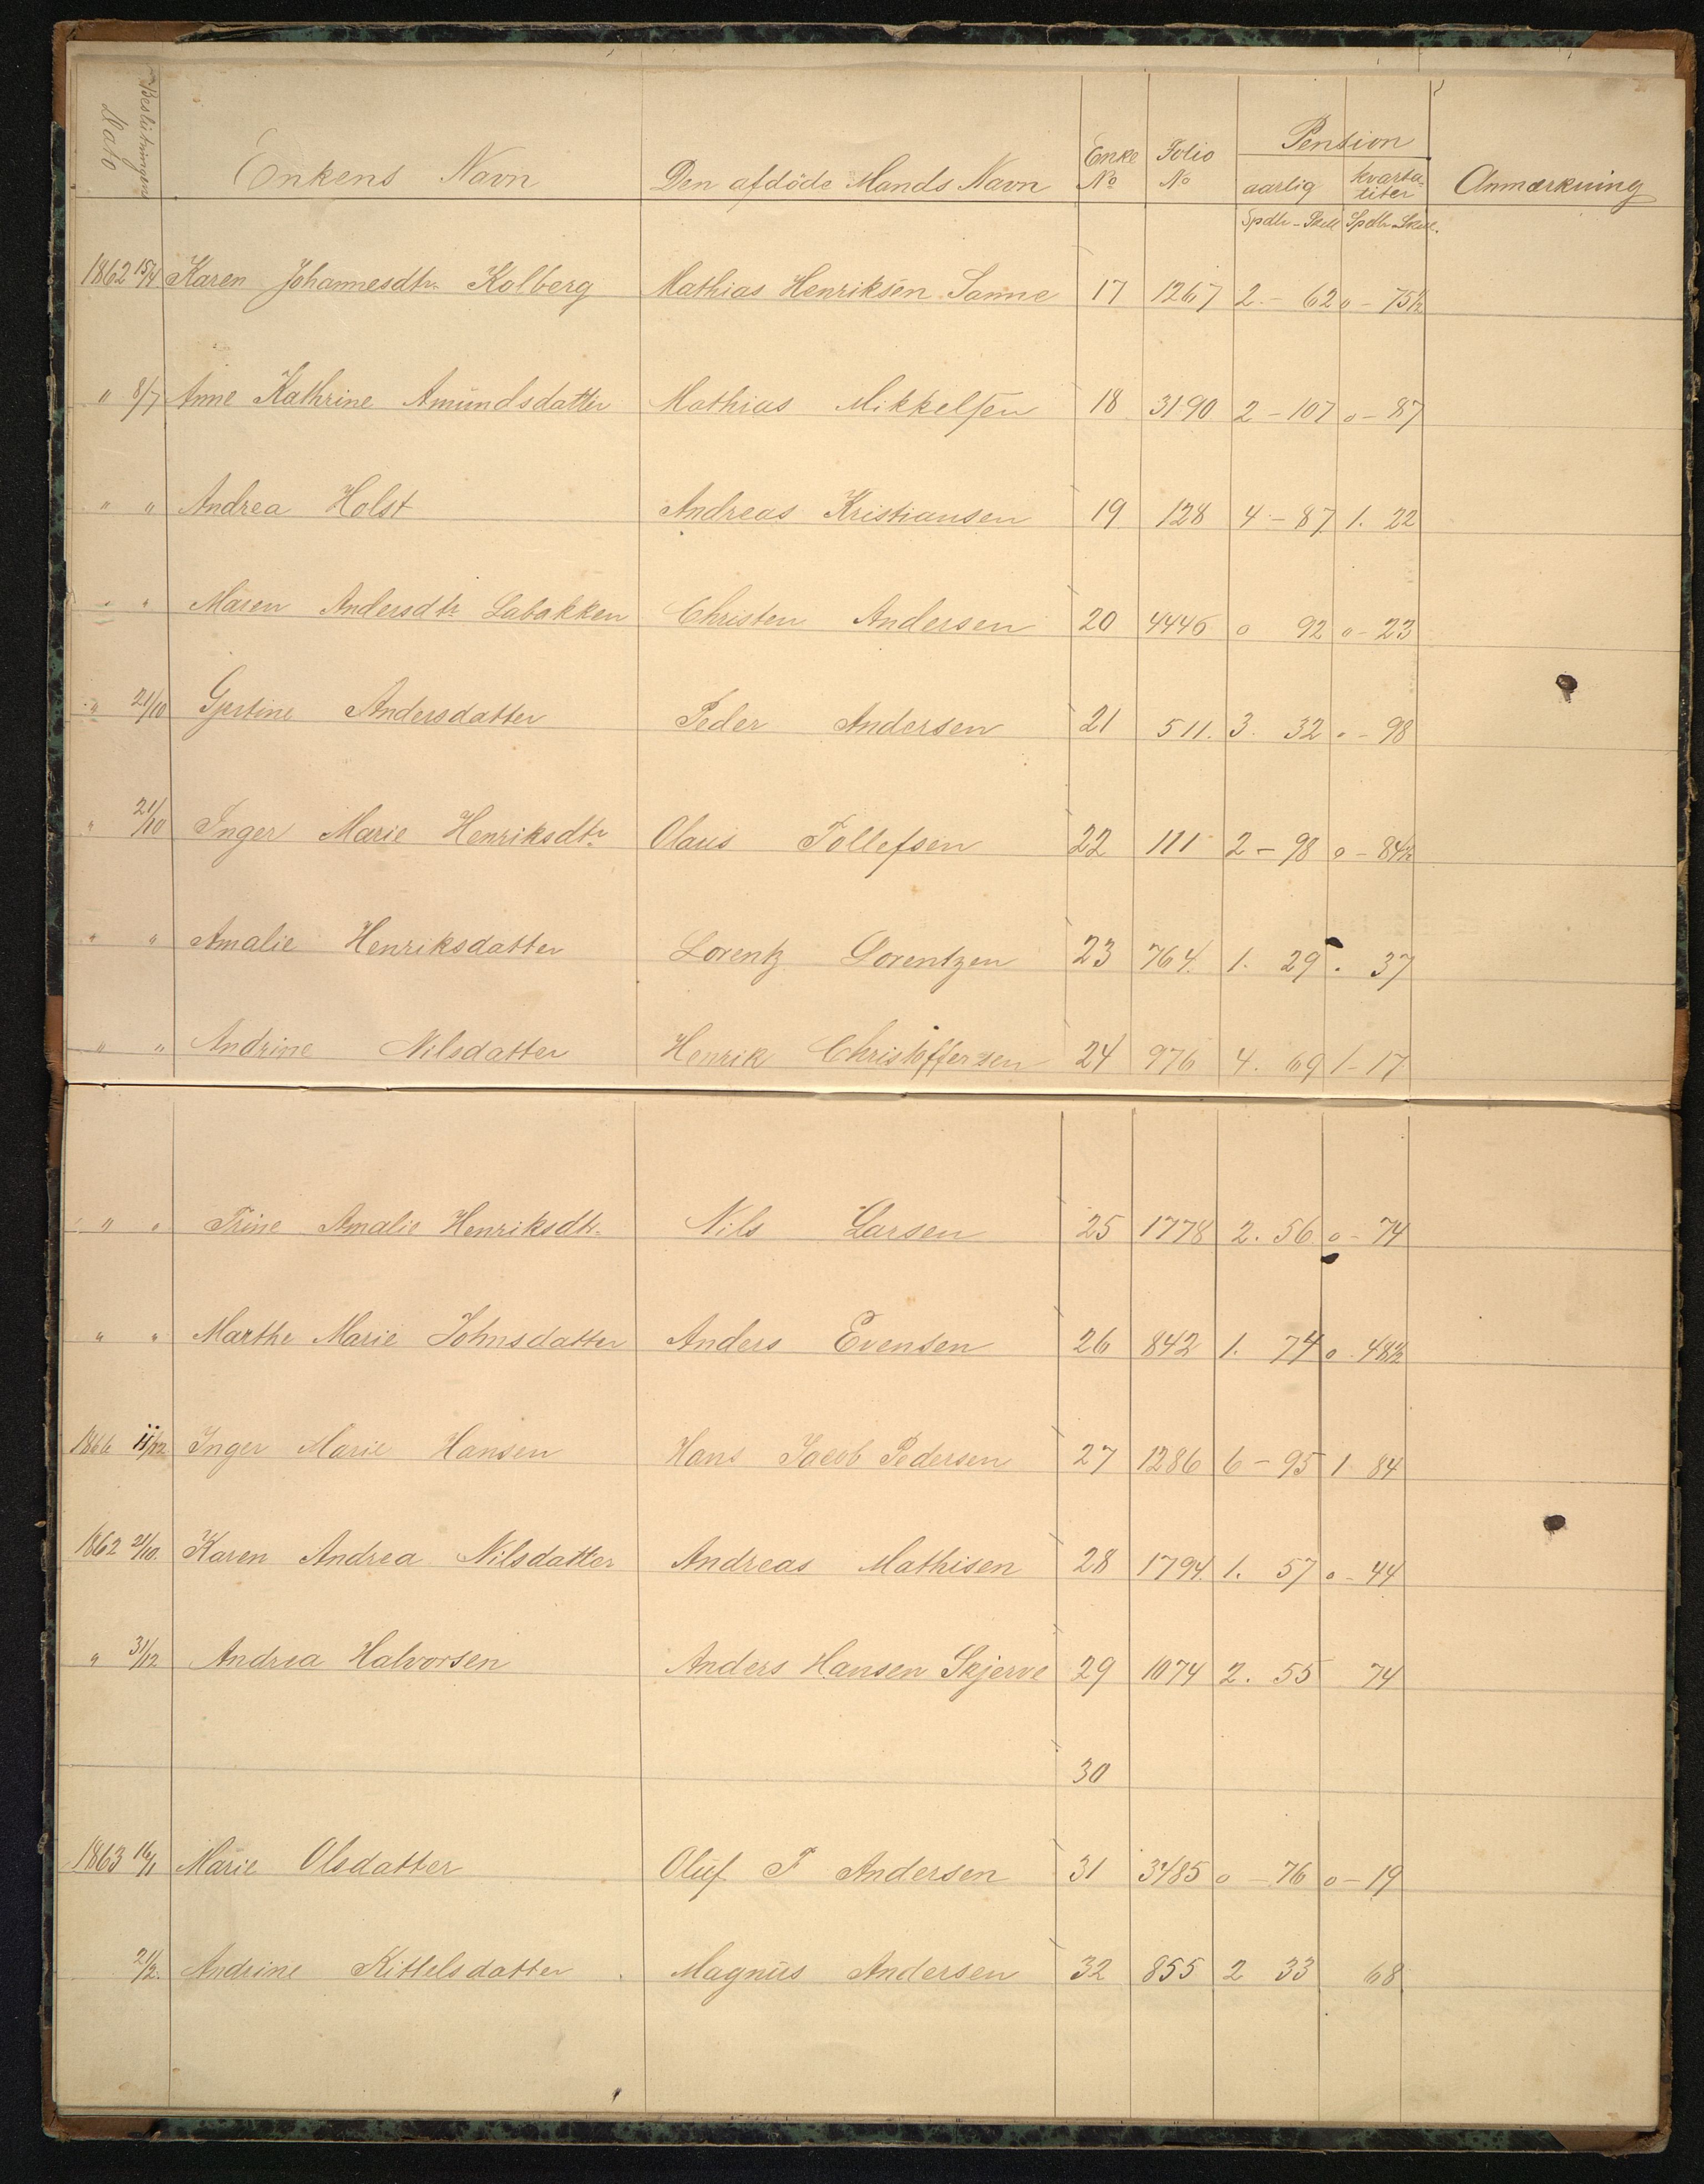 Beslutningens Dato | Enkens Navn | Den afdöde Mands Navn | Enke No | Folio No | Pension aarlig | kvartaliter | Anmærkning
Spdlr - Skill | Spdlr Skill.
1862 15/4 Karen Johannesdtr. Kolberg | Mathias Henriksen Sanne | 17 | 1267 | 2 - 62 | 0 - 75½
" 8/7 Anne Kathrine Amundsdatter | Mathias Mikkelsen | 18 | 3190 | 2 - 107 | 0 - 87
" " Andrea Holst | Andreas Kristiansen | 19 | 128 | 4 - 87 | 1. 22
" " Maren Andersdtr Labakken | Christen Andersen | 20 | 4446 | 0 92 | 0 - 23
" 21/10 Gjertine Andersdatter | Peder Andersen | 21 | 511. | 3. 32 | 0 - 98
" 21/10 Inger Marie Henriksdtr | Olaus Tollefsen | 22 | 111 | 2 - 98 | 0 - 84½
" " Amalie Henriksdatter | Lorentz Lorentzen | 23 | 764. | 1. 29 | . 37
" " Andrine Nilsdatter | Henrik Christoffersen | 24 | 976 | 4. 69 | 1 - 17
" " Trine Amalie Henriksdtr. | Nils Larsen | 25 | 1778 | 2. 56 | 0 - 74
" " Marthe Marie Johnsdatter | Anders Evensen | 26 | 842 | 1. 74 | 0 48½
1866 11/12 Inger Marie Hansen | Hans Jacob Pedersen | 27 | 1286 | 6 - 95 | 1 84
1862 21/10. Karen Andrea Nilsdatter | Andreas Mathisen | 28 | 1794. | 1. 57 | 0 - 44
" 31/12 Andrea Halvorsen | Anders Hansen Skjerve | 29 | 1074 | 2. 55 | 74
30
1863 16/1 Marie Olsdatter | Oluf F Andersen | 31 | 3785 | 0 - 76 | 0 - 19
21/2. Andrine Kittelsdatter | Magnus Andersen | 32 | 855 | 2 33 | 68